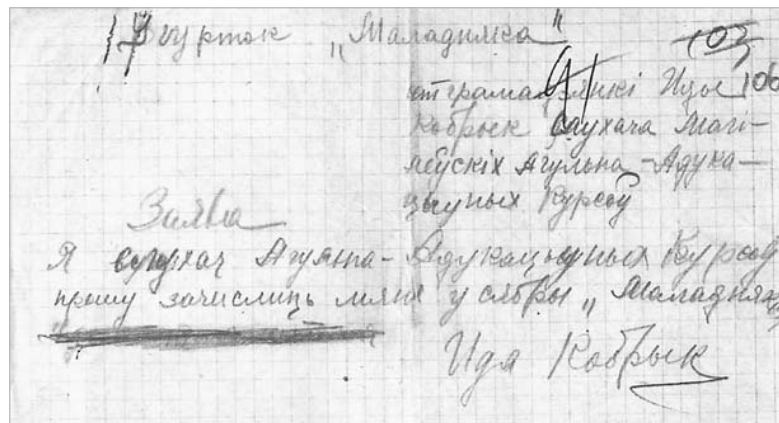 У гурток „Маладняка"
103
ат грамадзянкі Иды 106
Кобрык слухача Магі-
леўскіх Агульна-Адука-
цыуных Курсоў
Заява
Я слухач Агульна-Адукацыуных Курсоў
прашу зачислиць мяне у сябры „Маладняка
Ида Кобрык